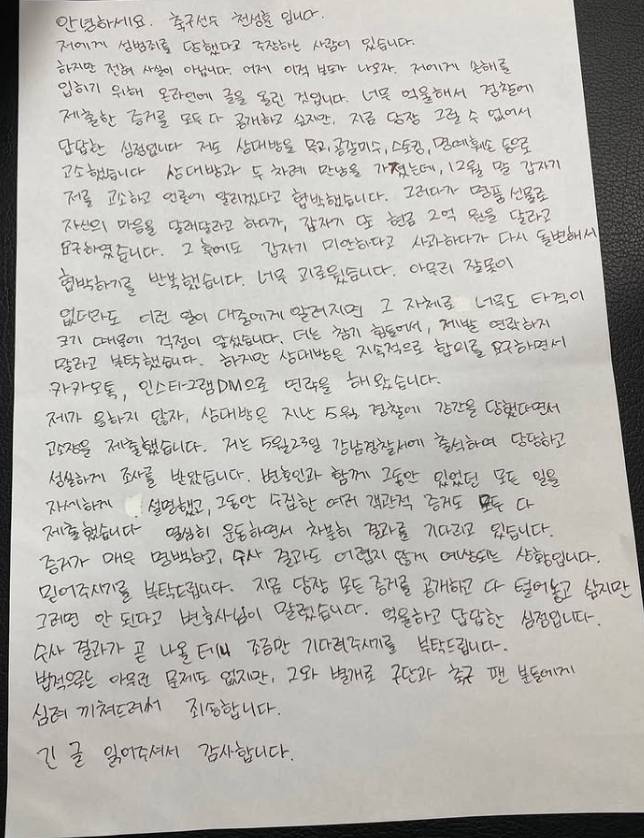 안녕하세요. 축구선수 천성훈 입니다.
저에게 성범죄를 당했다고 주장하는 사람이 있습니다.
하지만 전혀 사실이 아닙니다. 어제 이적 보도가 나오자, 저에게 손해를
입히기 위해 온라인에 글을 올린 것입니다. 너무 억울해서 경찰에
제출한 증거를 모두 다 공개하고 싶지만, 지금 당장 그럴 수 없어서
답답한 심정입니다 저도 상대방을 무고, 공갈미수, 스토킹, 명예훼손 등으로
고소했습니다 상대방과 두 차례 만남을 가졌는데, 12월 말 갑자기
저를 고소하고 언론에 알리겠다고 협박했습니다. 그러다가 명품 선물로
자신의 마음을 달래달라고 하다가, 갑자기 또 현금 2억 원을 달라고
요구하였습니다. 그 후에도 갑자기 미안하다고 사과하다가 다시 돌변해서
협박하기를 반복했습니다. 너무 괴로웠습니다. 아무리 잘못이
없더라도 이런 일이 대중에게 알려지면 그 자체로 너무도 타격이
크기 때문에 걱정이 앞섰습니다. 더는 참기 힘들어서, 제발 연락하지
말라고 부탁했습니다. 하지만 상대방은 지속적으로 합의를 요구하면서
카카오톡, 인스타그램DM으로 연락을 해왔습니다.
제가 응하지 않자, 상대방은 지난 5월, 경찰에 강간을 당했다면서
고소장을 제출했습니다. 저는 5월23일 강남경찰서에 출석하여 당당하고
성실하게 조사를 받았습니다. 변호인과 함께 그동안 있었던 모든 일을
자세하게 설명했고, 그동안 수집한 여러 객관적 증거도 모두 다
제출했습니다 열심히 운동하면서 차분히 결과를 기다리고 있습니다.
증거가 매우 명백하고, 수사 결과도 어렵지 않게 예상되는 상황입니다.
믿어주시기를 부탁드립니다. 지금 당장 모든 증거를 공개하고 다 털어놓고 싶지만
그러면 안 된다고 변호사님이 말렸습니다. 억울하고 답답한 심정입니다.
수사 결과가 곧 나올 테니 조금만 기다려주시기를 부탁드립니다.
법적으로는 아무런 문제도 없지만, 그와 별개로 구단과 축구 팬 분들에게
심려 끼쳐드려서 죄송합니다.
긴 글 읽어주셔서 감사합니다.